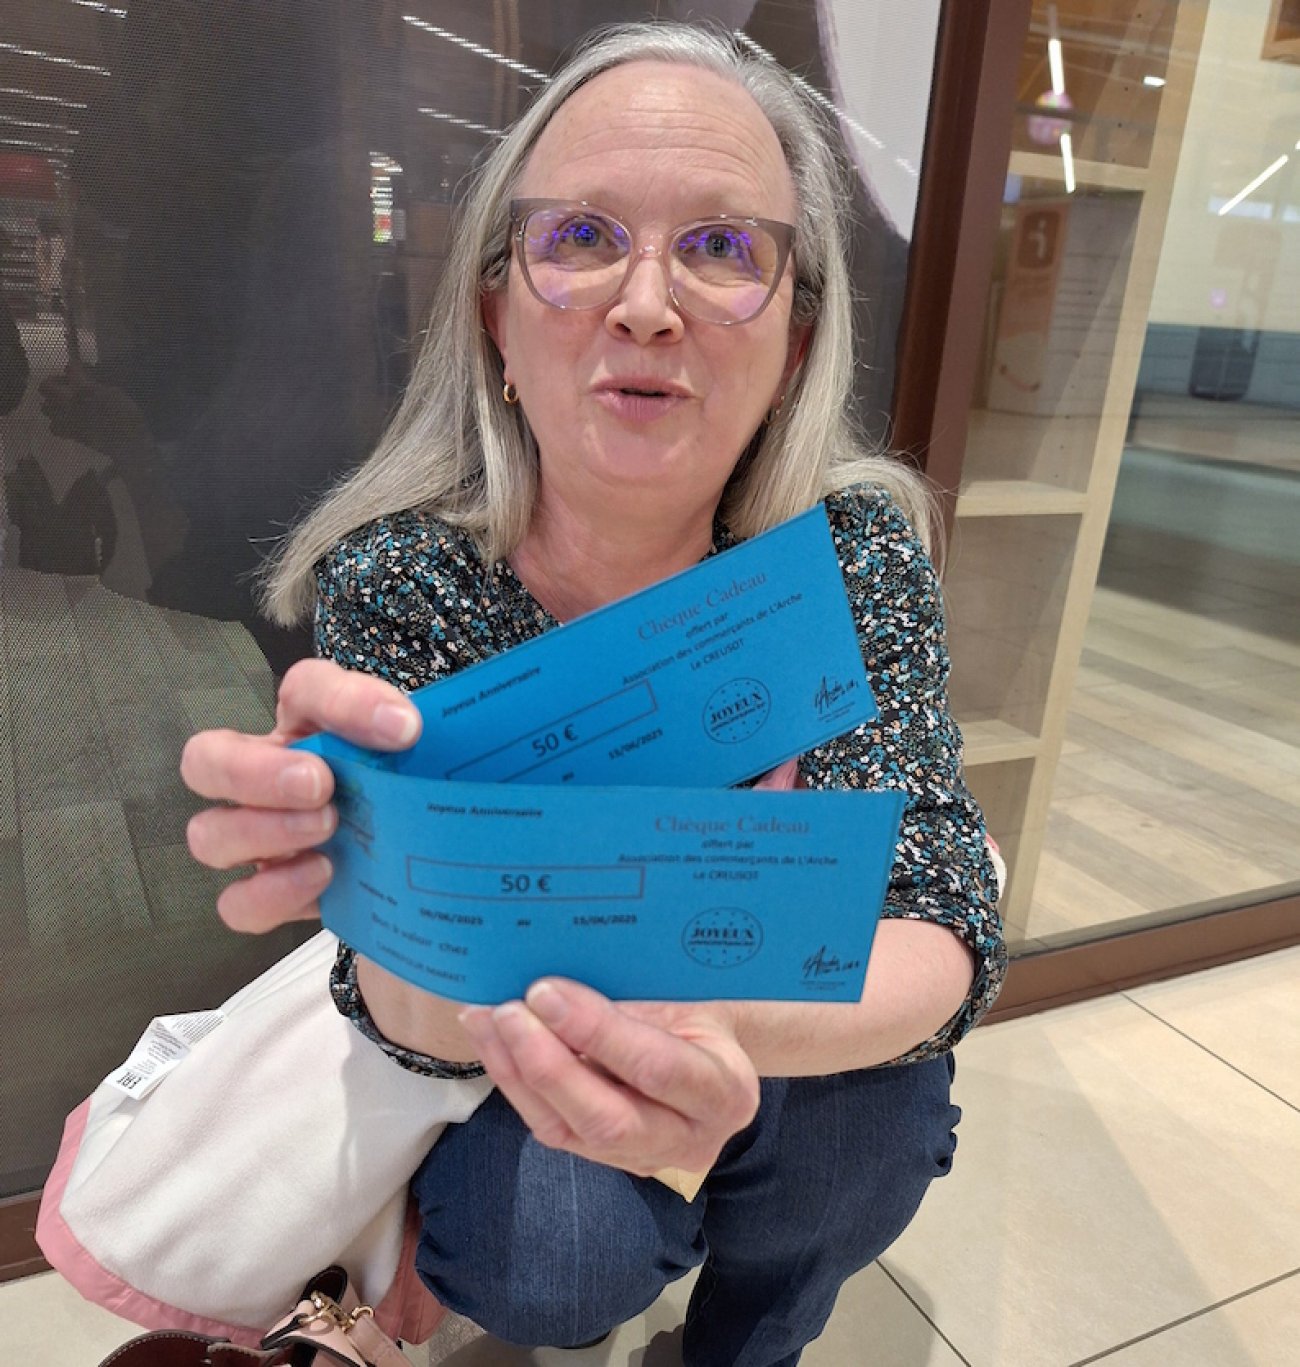 Chèque Cadeau
offert par
Association des commerçants de L'Arche
Le CREUSOT
Joyeux Anniversaire
50 €
au 15/06/2025
JOYEUX
Joyeux Anniversaire
Chèque Cadeau
offert par
Association des commerçants de L'Arche
Le CREUSOT
50 €
09/06/2025 au 15/06/2025
Bon à valoir chez
CARREFOUR MARKET
JOYEUX
EAC